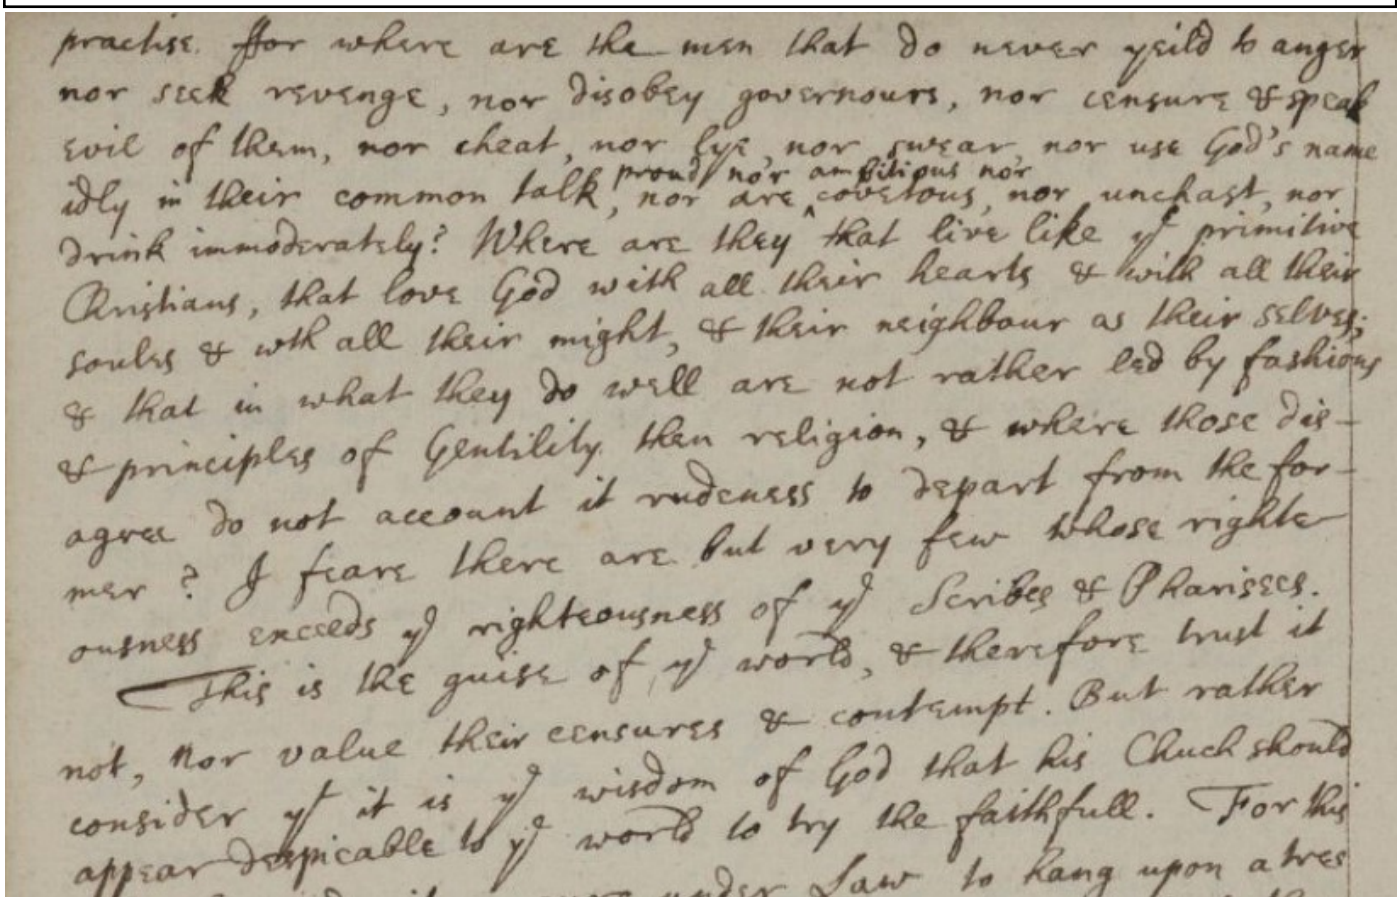 practise. ffor where are the men that do never yeild to anger
nor seek revenge, nor disobey governours, nor censure & speak
evil of them, nor cheat, nor lye, nor swear, nor use God's name
proud nor ambitious nor
idly in their common talk, nor are ^ covetous, nor unchast, nor
drink immoderately? Where are they that live like ye primitive
Christians, that love God with all their hearts & with all their
soules & wth all their might, & their neighbour as their selves;
& that in what they do well are not rather led by fashions
& principles of Gentility then religion, & where those dis-
agree do not account it rudeness to depart from the for-
mer? I feare there are but very few whose righte-
ousness exceeds ye righteousness of ye Scribes & Pharisees.
This is the guise of ye world, & therefore trust it
not, nor value their censures & contempt. But rather
consider yt it is ye wisdom of God that his Chuch should
appear despicable to ye world to try the faithfull. For this
under Law to hang upon a tree